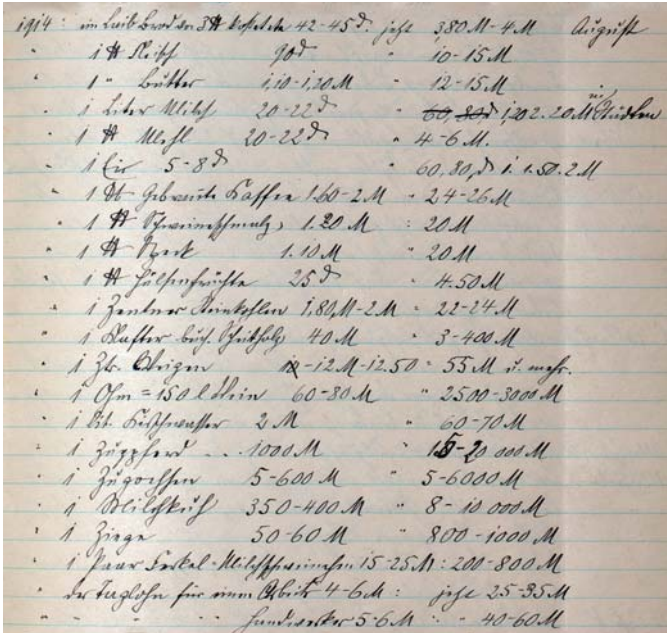 1914 : ein Laib Brod von 3 ℔ kostete 42-45 ₰. jetzt 3,80 M - 4 M August
" 1 ℔ Fleisch 90 ₰ " 10-15 M
" 1 " Butter 1,10-1,20 M " 12-15 M
" 1 Liter Milch 20-22 ₰ " 60, 80 ₰ 1,20 2.20 M in Städten
" 1 ℔ Mehl 20-22 ₰ " 4-6 M.
" 1 Ei 5-8 ₰ " 60, 80, ₰ 1. 1.50. 2 M
" 1 ℔ Gebrannte Kaffee 1.60-2 M " 24-26 M
" 1 ℔ Schweineschmalz, 1.20 M : 20 M
" 1 ℔ Speck 1.10 M " 20 M
" 1 ℔ Hülsenfrüchte 25 ₰ " 4.50 M
" 1 Zentner Steinkohlen 1,80 M-2 M " 22-24 M
" 1 Klafter buch. Scheitholz 40 M " 3-400 M
" 1 Ztr. Weizen 12 M-12.50 " 55 M u. mehr.
" 1 Ohm = 150 l Wein 60-80 M " 2500-3000 M
" 1 Lit. Kirschwasser 2 M " 60-70 M
" 1 Zugpferd . . . 1000 M " 15-20 000 M
" 1 Zugochsen 5-600 M " 5-6000 M
" 1 Milchkuh 350-400 M " 8-10 000 M
" 1 Ziege 50-60 M " 800-1000 M
" 1 Paar Ferkel-Milchschweinchen 15-25 M : 200-800 M
" der Taglohn für einen Arbeiter 4-6 M : jetzt 25-35 M
" " " " Handwerker 5-6 M " " 40-60 M